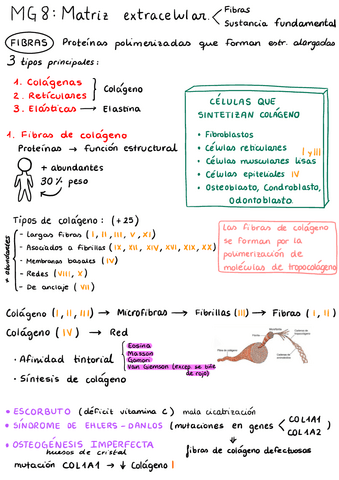 MG8: Matriz extracelular. Fibras
Sustancia fundamental
FIBRAS Proteínas polimerizadas que forman estr. alargadas
3 tipos principales:
1. Colágenas
2. Reticulares
Colágeno
3. Elásticas → Elastina
CÉLULAS QUE
SINTETIZAN COLÁGENO
• Fibroblastos
• Células reticulares I y III
• Células musculares lisas
• Células epiteliales IV
• Osteoblasto, Condroblasto,
Odontoblasto
1. Fibras de colágeno
Proteínas → función estructural
+ abundantes
30% peso
Tipos de colágeno: (+25)
+ abundantes
- Largas fibras (I, II, III, V, XI)
- Asociados a fibrillas (IX, XII, XIV, XVI, XIX, XX)
- Membranas basales (IV)
- Redes (VIII, X)
- De anclaje (VII)
Las fibras de colágeno
se forman por la
polimerización de
moléculas de tropocolágeno
Colágeno (I, II, III) → Microfibras → Fibrillas (III) → Fibras (I, II)
Colágeno (IV) → Red
• Afinidad tintorial
Eosina
Masson
Gomori
Van Giemson (excep. se tiñe
de rojo)
• Síntesis de colágeno
• ESCORBUTO (déficit vitamina C) mala cicatrización
• SÍNDROME DE EHLERS-DANLOS (mutaciones en genes COL1A1
COL1A2)
• OSTEOGÉNESIS IMPERFECTA
huesos de cristal
fibras de colágeno defectuosas
mutación COL1A1 → ↓ Colágeno I